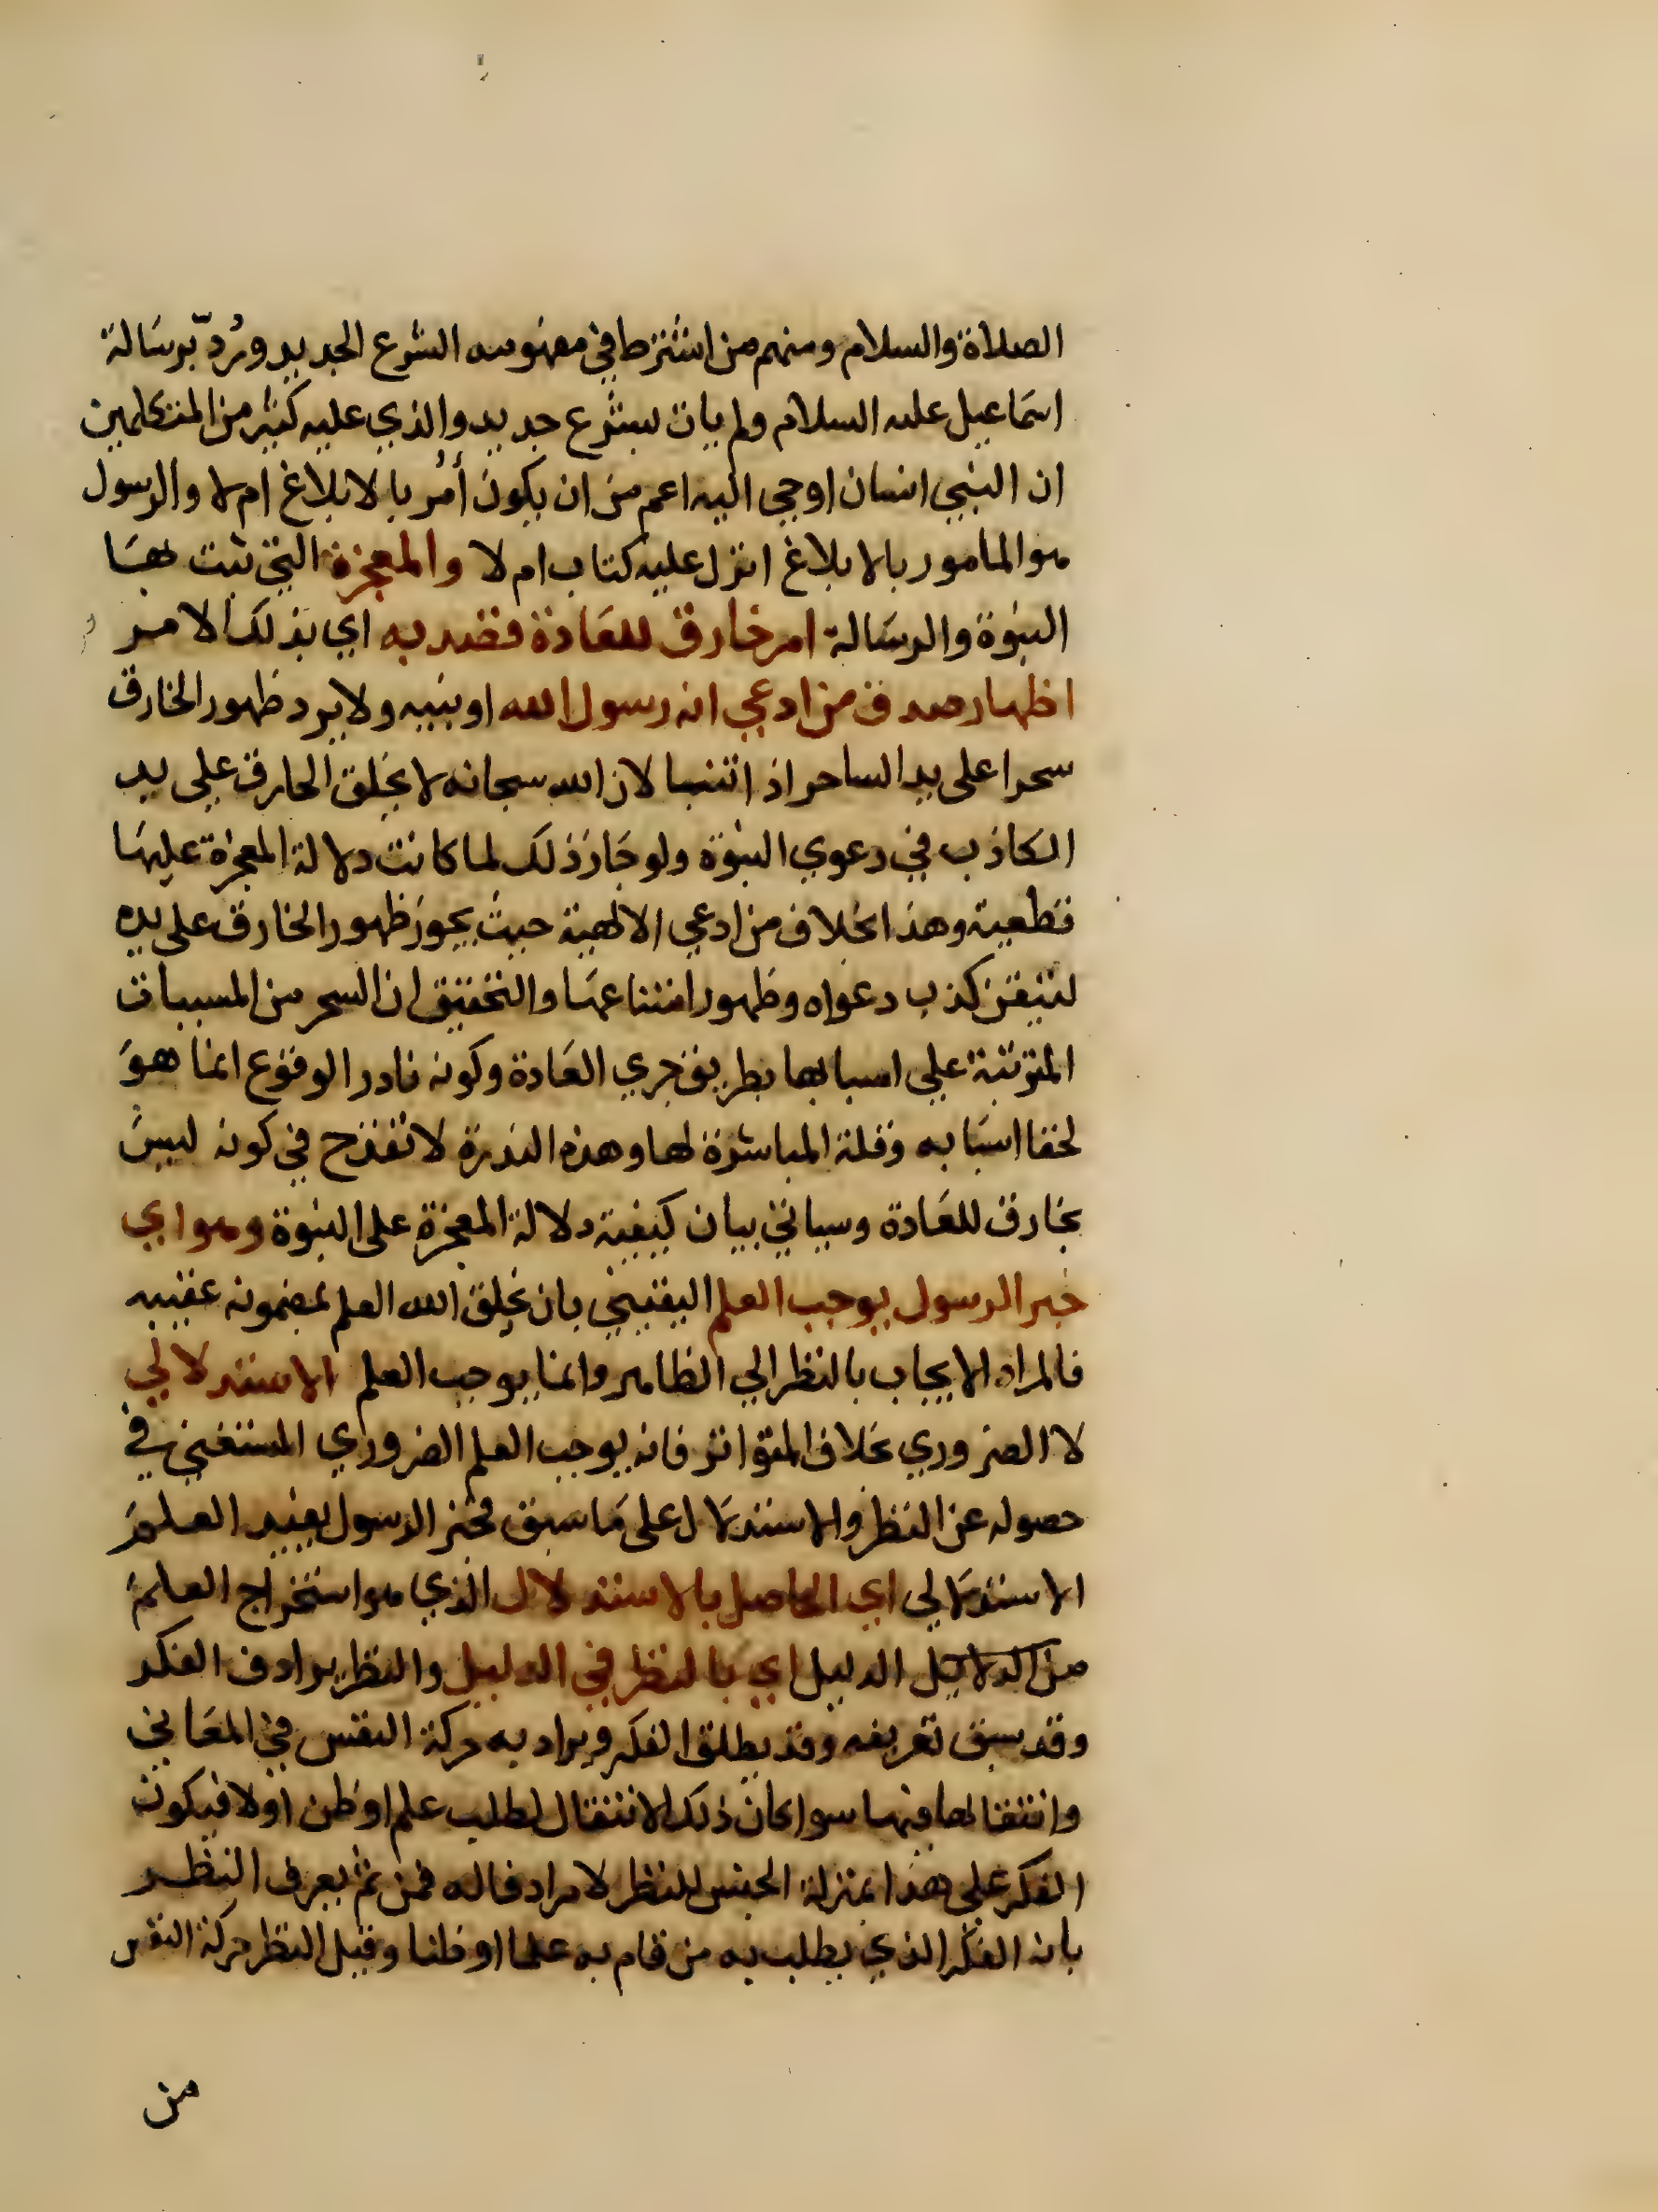 الصلاة والسلام ومنهم من اشترط في مفهومه الشرع الجديد ورُدّ برسالة
اسماعيل عليه السلام ولم يات بشرع جديد والذي عليه كثير من المتكلمين
ان النبي انسان اوحي اليه اعم من ان يكون أُمر بالابلاغ ام لا والرسول
هو المامور بالابلاغ انزل عليه كتاب ام لا والمعجزة التي ثبت بها
النبوة والرسالة امر خارق للعادة قصد به اي بذلك الامر
اظهار صدق من ادعي انه رسول الله او نبيه ولا يرد ظهور الخارق
سحرا علي يد الساحر اذ اتنبا لان الله سبحانه لا يخلق الخارق علي يد
الكاذب في دعوي النبوة ولو جاز ذلك لما كانت دلالة المعجزة عليها
قطعية وهذا بخلاف من ادعي الالهية حيث يجوز ظهور الخارق علي يده
لتيقن كذب دعواه وظهور امتناعها والتحقيق ان السحر من المسببات
المترتبة علي اسبابها بطريق جري العادة وكونه نادر الوقوع انما هو
لخفا اسبابه وقلة المباشرة لها وهذه الندرة لا تقدح في كونه ليس
بخارق للعادة وسياتي بيان كيفية دلالة المعجزة علي النبوة وهو اي
خبر الرسول يوجب العلم اليقيني بان يخلق الله العلم بمضمونه عقيبه
فالمراد الايجاب بالنظر الي الظاهر وانما يوجب العلم الاستدلالي
لا الضروري بخلاف المتواتر فانه يوجب العلم الضروري المستغني في
حصوله عن النظر والاستدلال علي ما سبق فخبر الرسول يفيد العلم
الاستدلالي اي الحاصل بالاستدلال الذي هو استخراج العلم
من الدلايل الدليل اي بالنظر في الدليل والنظر يرادف الفكر
وقد سبق تعريفه وقد يطلق الفكر ويراد به حركة النفس في المعاني
وانتقالها فيها سوا كان ذلك الانتقال لطلب علم او ظن او لا فيكون
الفكر علي هذا بمنزلة الجنس للنظر لا مرادفا له فمن ثم يعرف النظر
بانه الفكر الذي يطلب به من قام به علما او ظنا وقيل النظر حركة النفس
من